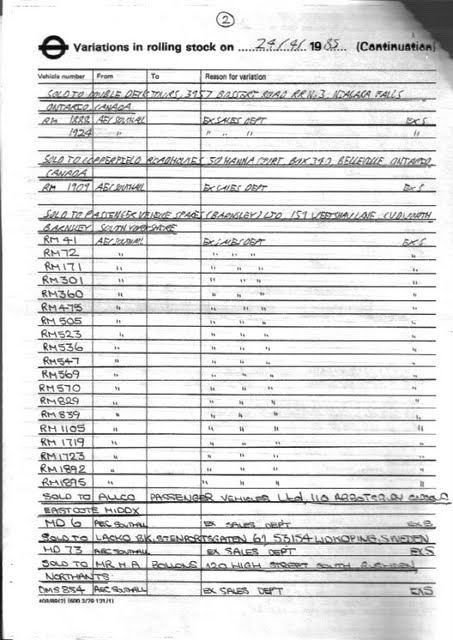 2
Variations in rolling stock on 24/4/ 1985 (Continuation)
Vehicle number From To Reason for variation
SOLD TO DOUBLE DECK TOURS, 3957 BOSSERT ROAD RR No 3, NIAGARA FALLS
ONTARIO CANADA
RM 1888 AEC SOUTHALL EX SALES DEPT EX S
1924 " " " " "
SOLD TO COPPERFIELD ROADHOUSE, 50 HANNA COURT, BOX 340, BELLEVILLE, ONTARIO,
CANADA
RM 1909 AEC SOUTHALL EX SALES DEPT EX S
SOLD TO PASSENGER VEHICLE SPARES (BARNSLEY) LTD, 159 LANE, CUDWORTH
BARNSLEY SOUTH YORKSHIRE
RM 41 AEC SOUTHALL EX SALES DEPT EX S
RM 72 " " " " "
RM 171 " " " " "
RM 301 " " " " "
RM 360 " " " " "
RM 475 " " " " "
RM 505 " " " " "
RM 523 " " " " "
RM 536 " " " " "
RM 547 " " " " "
RM 569 " " " " "
RM 570 " " " " "
RM 829 " " " " "
RM 839 " " " " "
RM 1105 " " " " "
RM 1719 " " " " "
RM 1723 " " " " "
RM 1892 " " " " "
RM 1895 " " " " "
SOLD TO ALLCO PASSENGER VEHICLES Ltd, 110 ABBOTSBURY GARDENS
EASTCOTE MIDDX
MD 6 AEC SOUTHALL EX SALES DEPT EX S
SOLD TO LACKO BK, STENPORTSGATEN 61 53154 LIDKOPING, SWEDEN
MD 73 AEC SOUTHALL EX SALES DEPT EX S
SOLD TO MR H A BOLLONS 120 HIGH STREET SOUTH RUSHDEN,
NORTHANTS
DMS 854 AEC SOUTHALL EX SALES DEPT EX S